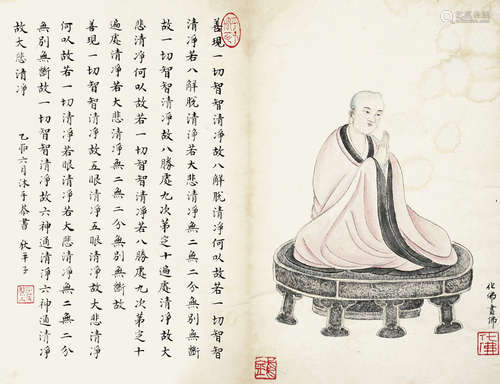 善現一切智智清淨故八解脫清淨何以故若一切智智
清淨若八解脫清淨若大悲清淨無二無二分無別無斷
故一切智智清淨故八勝處九次第定十遍處清淨故大
悲清淨何以故若一切智智清淨若八勝處九次第定十
遍處清淨若大悲清淨無二無二分無別無斷故
善現一切智智清淨故五眼清淨五眼清淨故大悲清淨
何以故若一切智智清淨若眼清淨若大悲清淨無二無二分
無別無斷故一切智智清淨故六神通清淨六神通清淨
故大悲清淨
乙卯六月沐手恭書
化佛畫佛